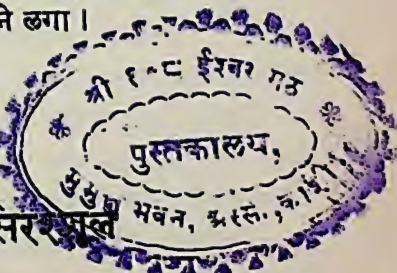 ने लगा ।
श्री १०८ ईश्वर मठ
पुस्तकालय,
मुमुक्षु भवन, अस्सी, वाराणसी